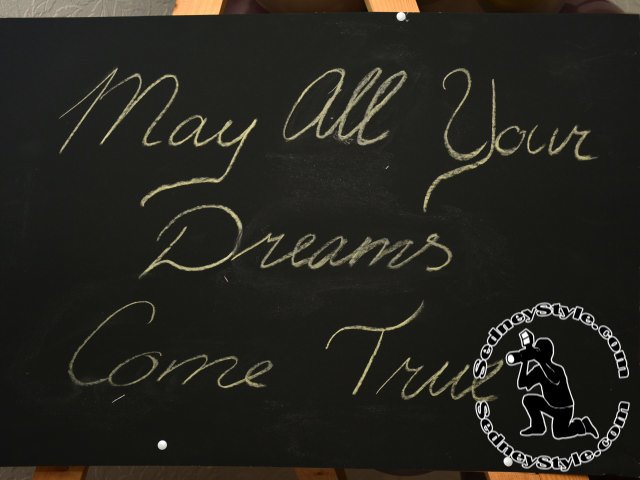 May All Your
Dreams
Come True
SedneyStyle.com
SedneyStyle.com